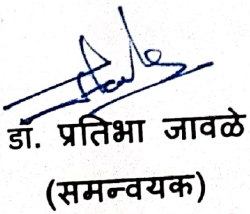 डॉ. प्रतिभा जावळे
(समन्वयक)